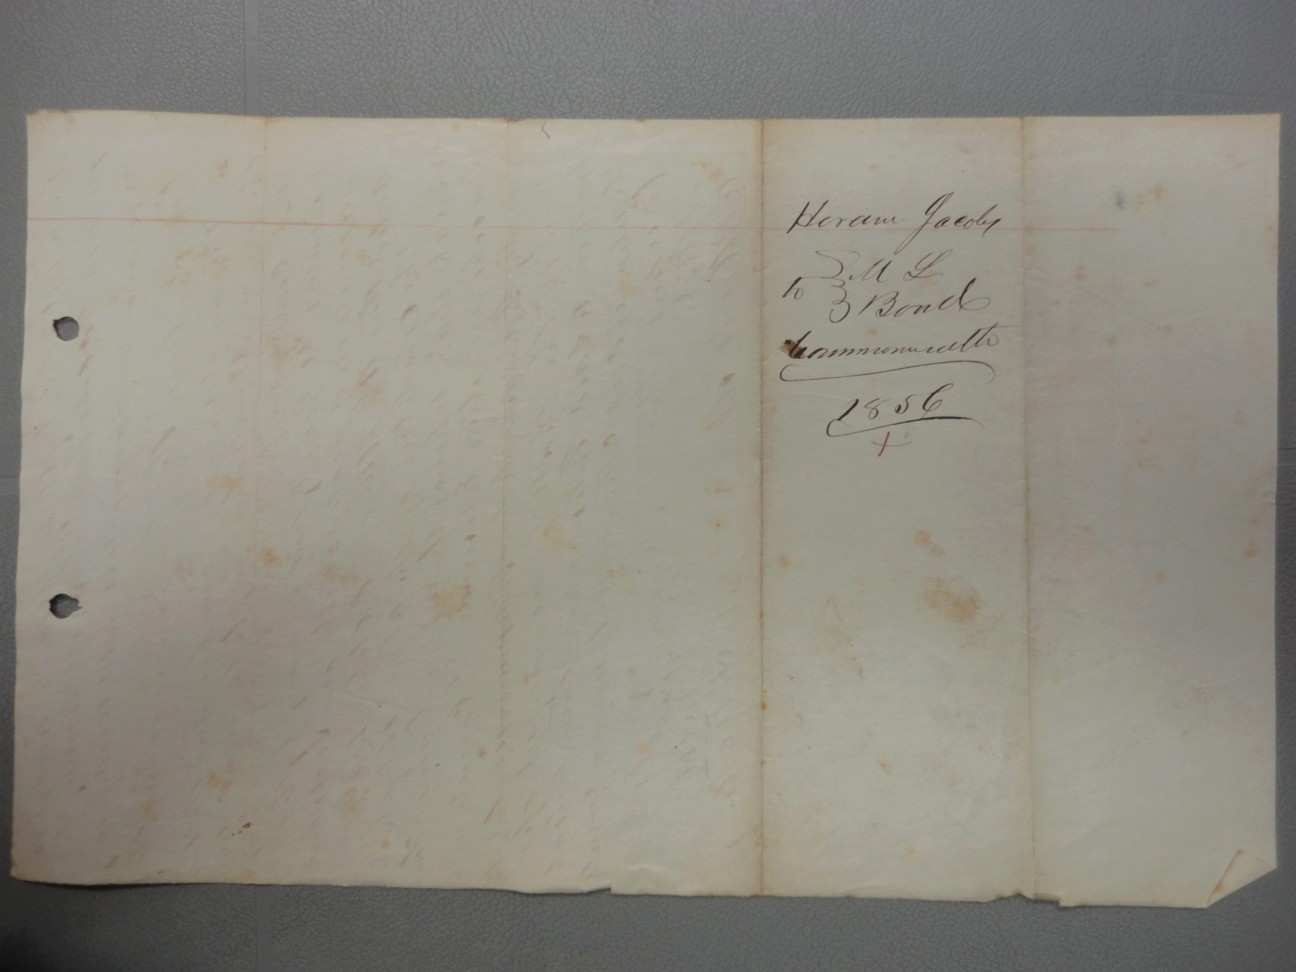 Hiram Jacoby
M L
to Bond
Commonwealth
1856